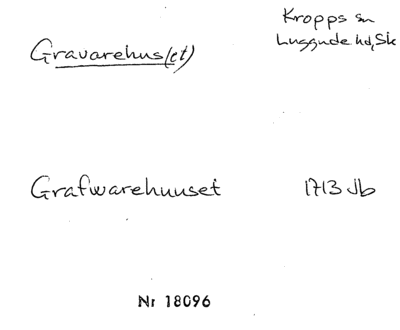 Gravarehus(et)
Kropps sn
Luggude hd, Sk
Grafwarehuuset 1713 Jb
Nr 18096